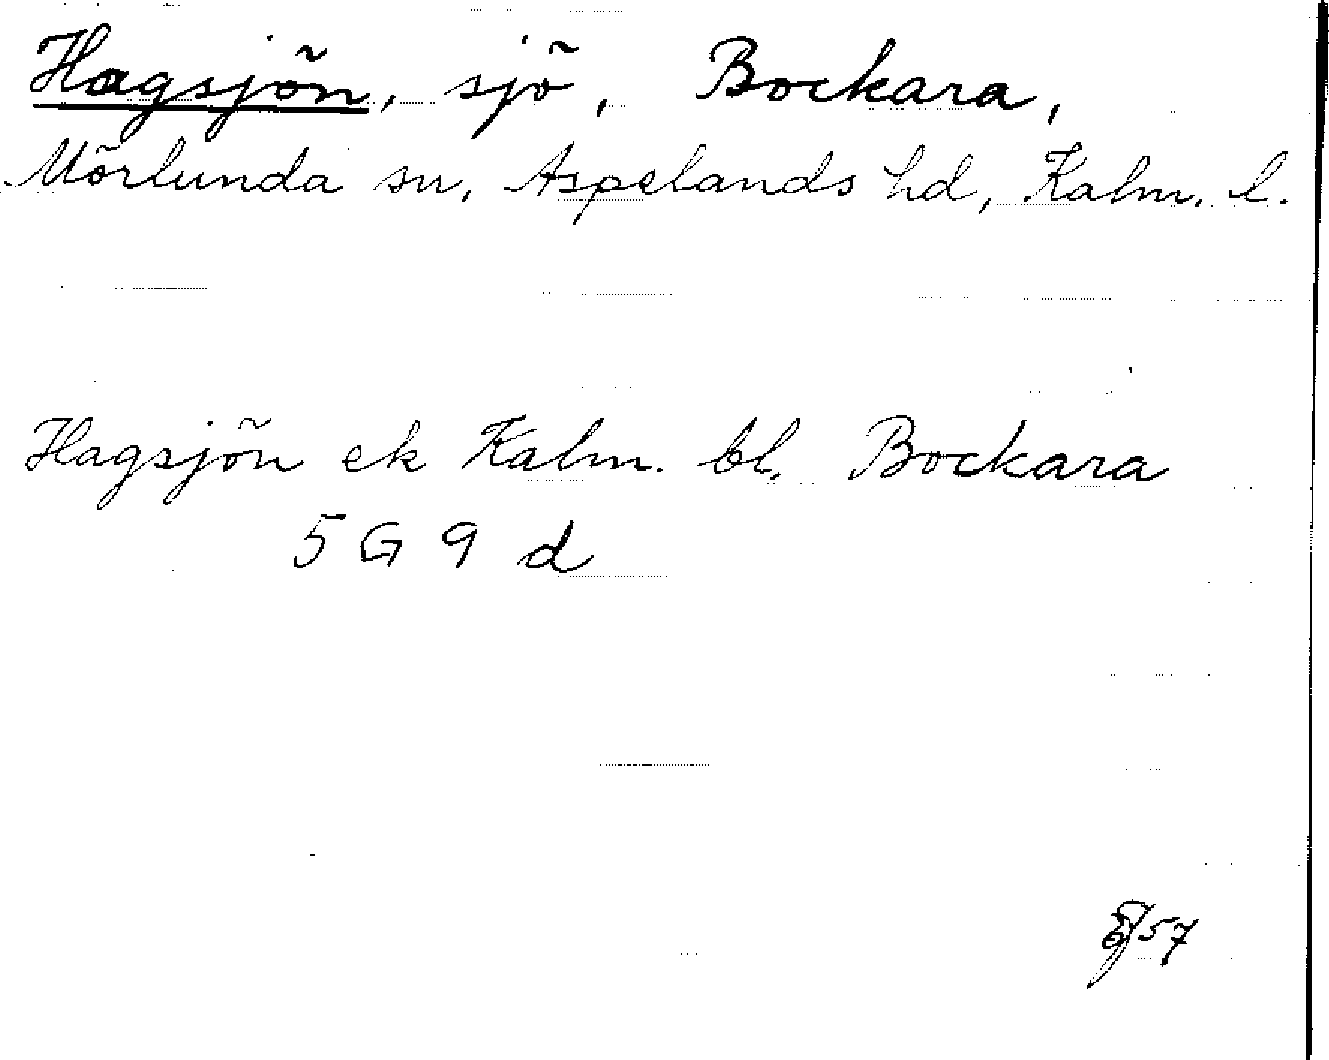 Hagsjön, sjö, Bockara,
Mörlunda sn, Aspelands hd, Kalm. l.
Hagsjön ek Kalm. bl. Bockara
5 G 9 d
57